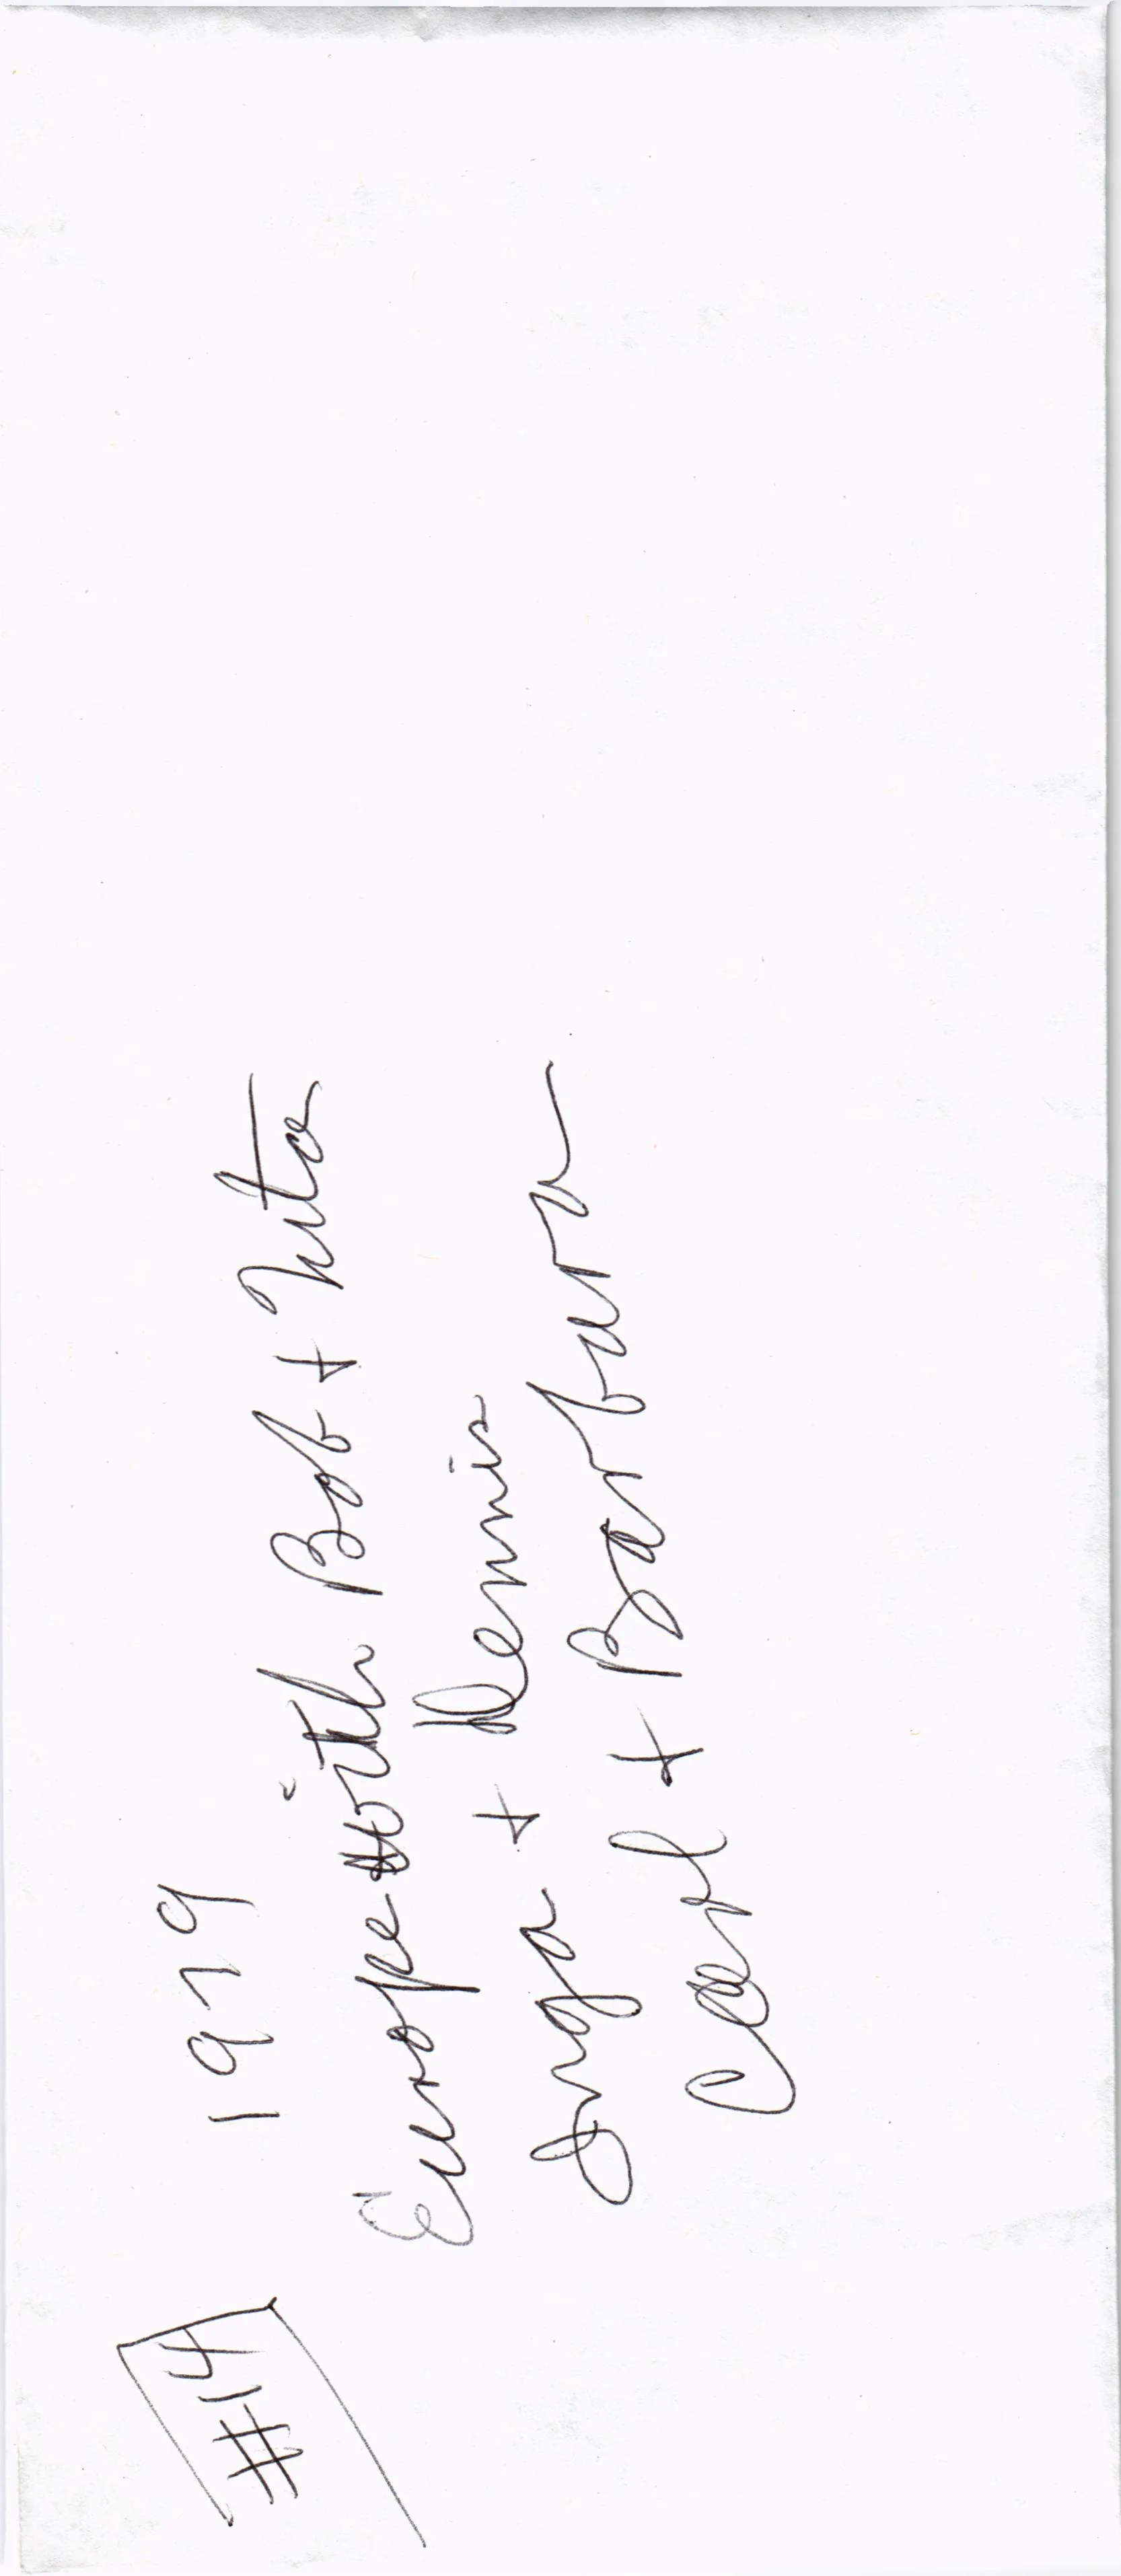 #14
1979
Europe with Bob + Nita
Inga + Dennis
Carl + Barbara